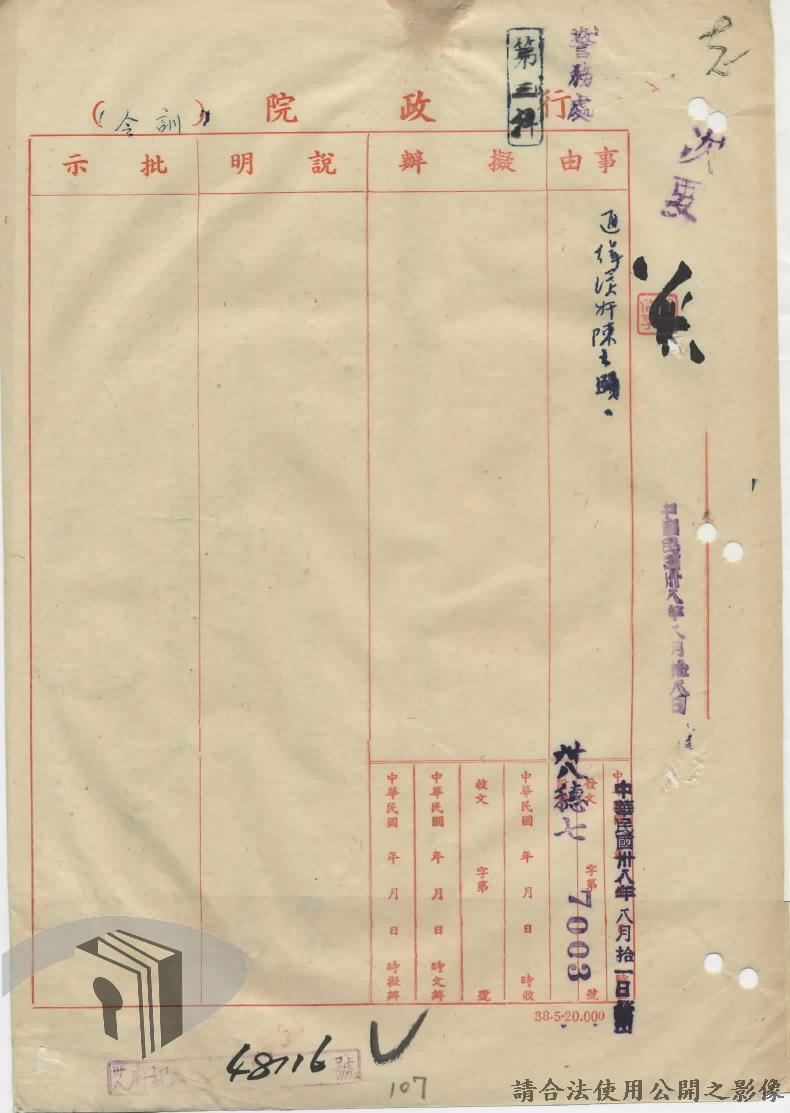 警務處
第三科
行政院（訓令）
事由
擬辦
說明
批示
通緝漢奸陳
中華民國卅八年八月拾八日
中華民國卅八年八月拾一日
發文 字第 號
卅八穗七
7003
中華民國 年 月 日 時收
收文 字第 號
中華民國 年 月 日 時交辦
中華民國 年 月 日 時擬辦
38-5-20.000
48716 號
107
請合法使用公開之影像